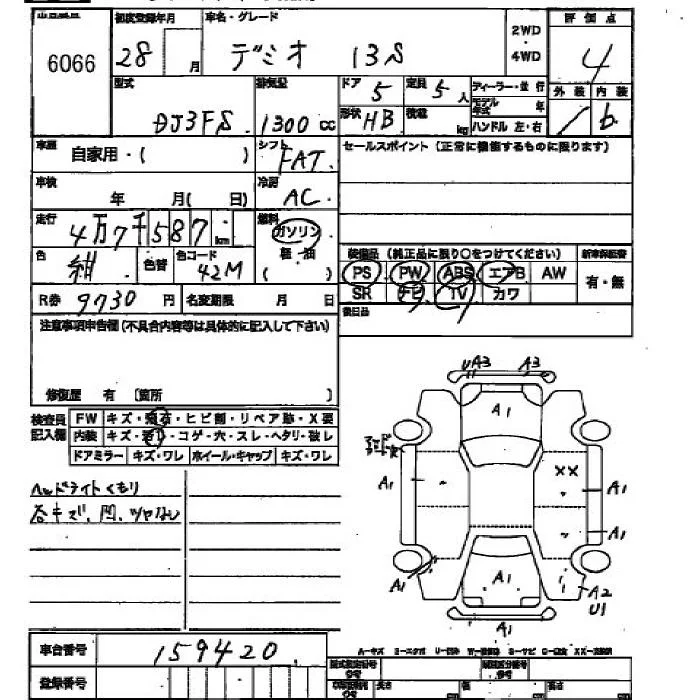 6066
初度登録年月
28 月
車名・グレード
デミオ 13S
2WD
・
4WD
評価点
4
型式
DJ3FS
排気量
1300 cc
ドア 5
定員 5 人
形状 HB
積載 kg
ディーラー・並行
モデル年式 年
ハンドル 左・右
外装 内装
b
車歴 自家用・( )
シフト FAT
セールスポイント (正常に機能するものに限ります)
車検 年 月( 日)
冷房 AC
走行 4万7千587 km
燃料 ガソリン
軽・油
( )
色 紺
色替
色コード 42M
装備品 (純正品に限り○をつけてください)
新車保証書
PS PW ABS エアB AW
有・無
SR ナビ TV カワ
R券 9730 円
名変期限 月 日
後日品
注意事項申告欄(不具合内容等は具体的に記入して下さい)
修復歴 有 〔箇所 〕
検査員
記入欄
FW キズ・飛石・ヒビ割・リペア跡・X要
内装 キズ・汚れ・コゲ・穴・スレ・ヘタリ・破レ
ドアミラー キズ・ワレ ホイール・キャップ キズ・ワレ
ヘッドライトくもり
各キズ、凹、ツヤなし
UA3 A3
A1
A1
XX
A1
A1
A1
A1
A2
U1
A1
車台番号 159420
登録番号